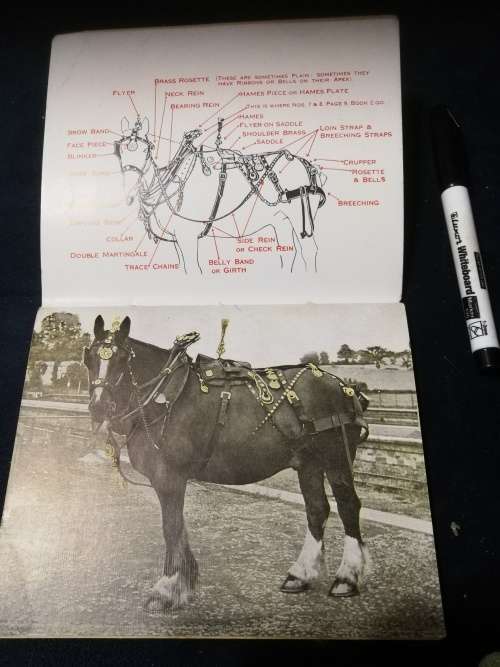 BRASS ROSETTE (THESE ARE SOMETIMES PLAIN: SOMETIMES THEY
HAVE RIBBONS OR BELLS ON THEIR APEX)
FLYER
NECK REIN
HAMES PIECE OR HAMES PLATE
BEARING REIN
THIS IS WHERE NOS. 7 & 8, PAGE 9, BOOK 2 GO.
HAMES
FLYER ON SADDLE
BROW BAND
SHOULDER BRASS
LOIN STRAP &
BREECHING STRAPS
FACE PIECE
SADDLE
BLINKER
CRUPPER
ROSETTE
& BELLS
BREECHING
COLLAR
SIDE REIN
OR CHECK REIN
DOUBLE MARTINGALE
TRACE CHAINS
BELLY BAND
OR GIRTH
Whiteboard
Marker